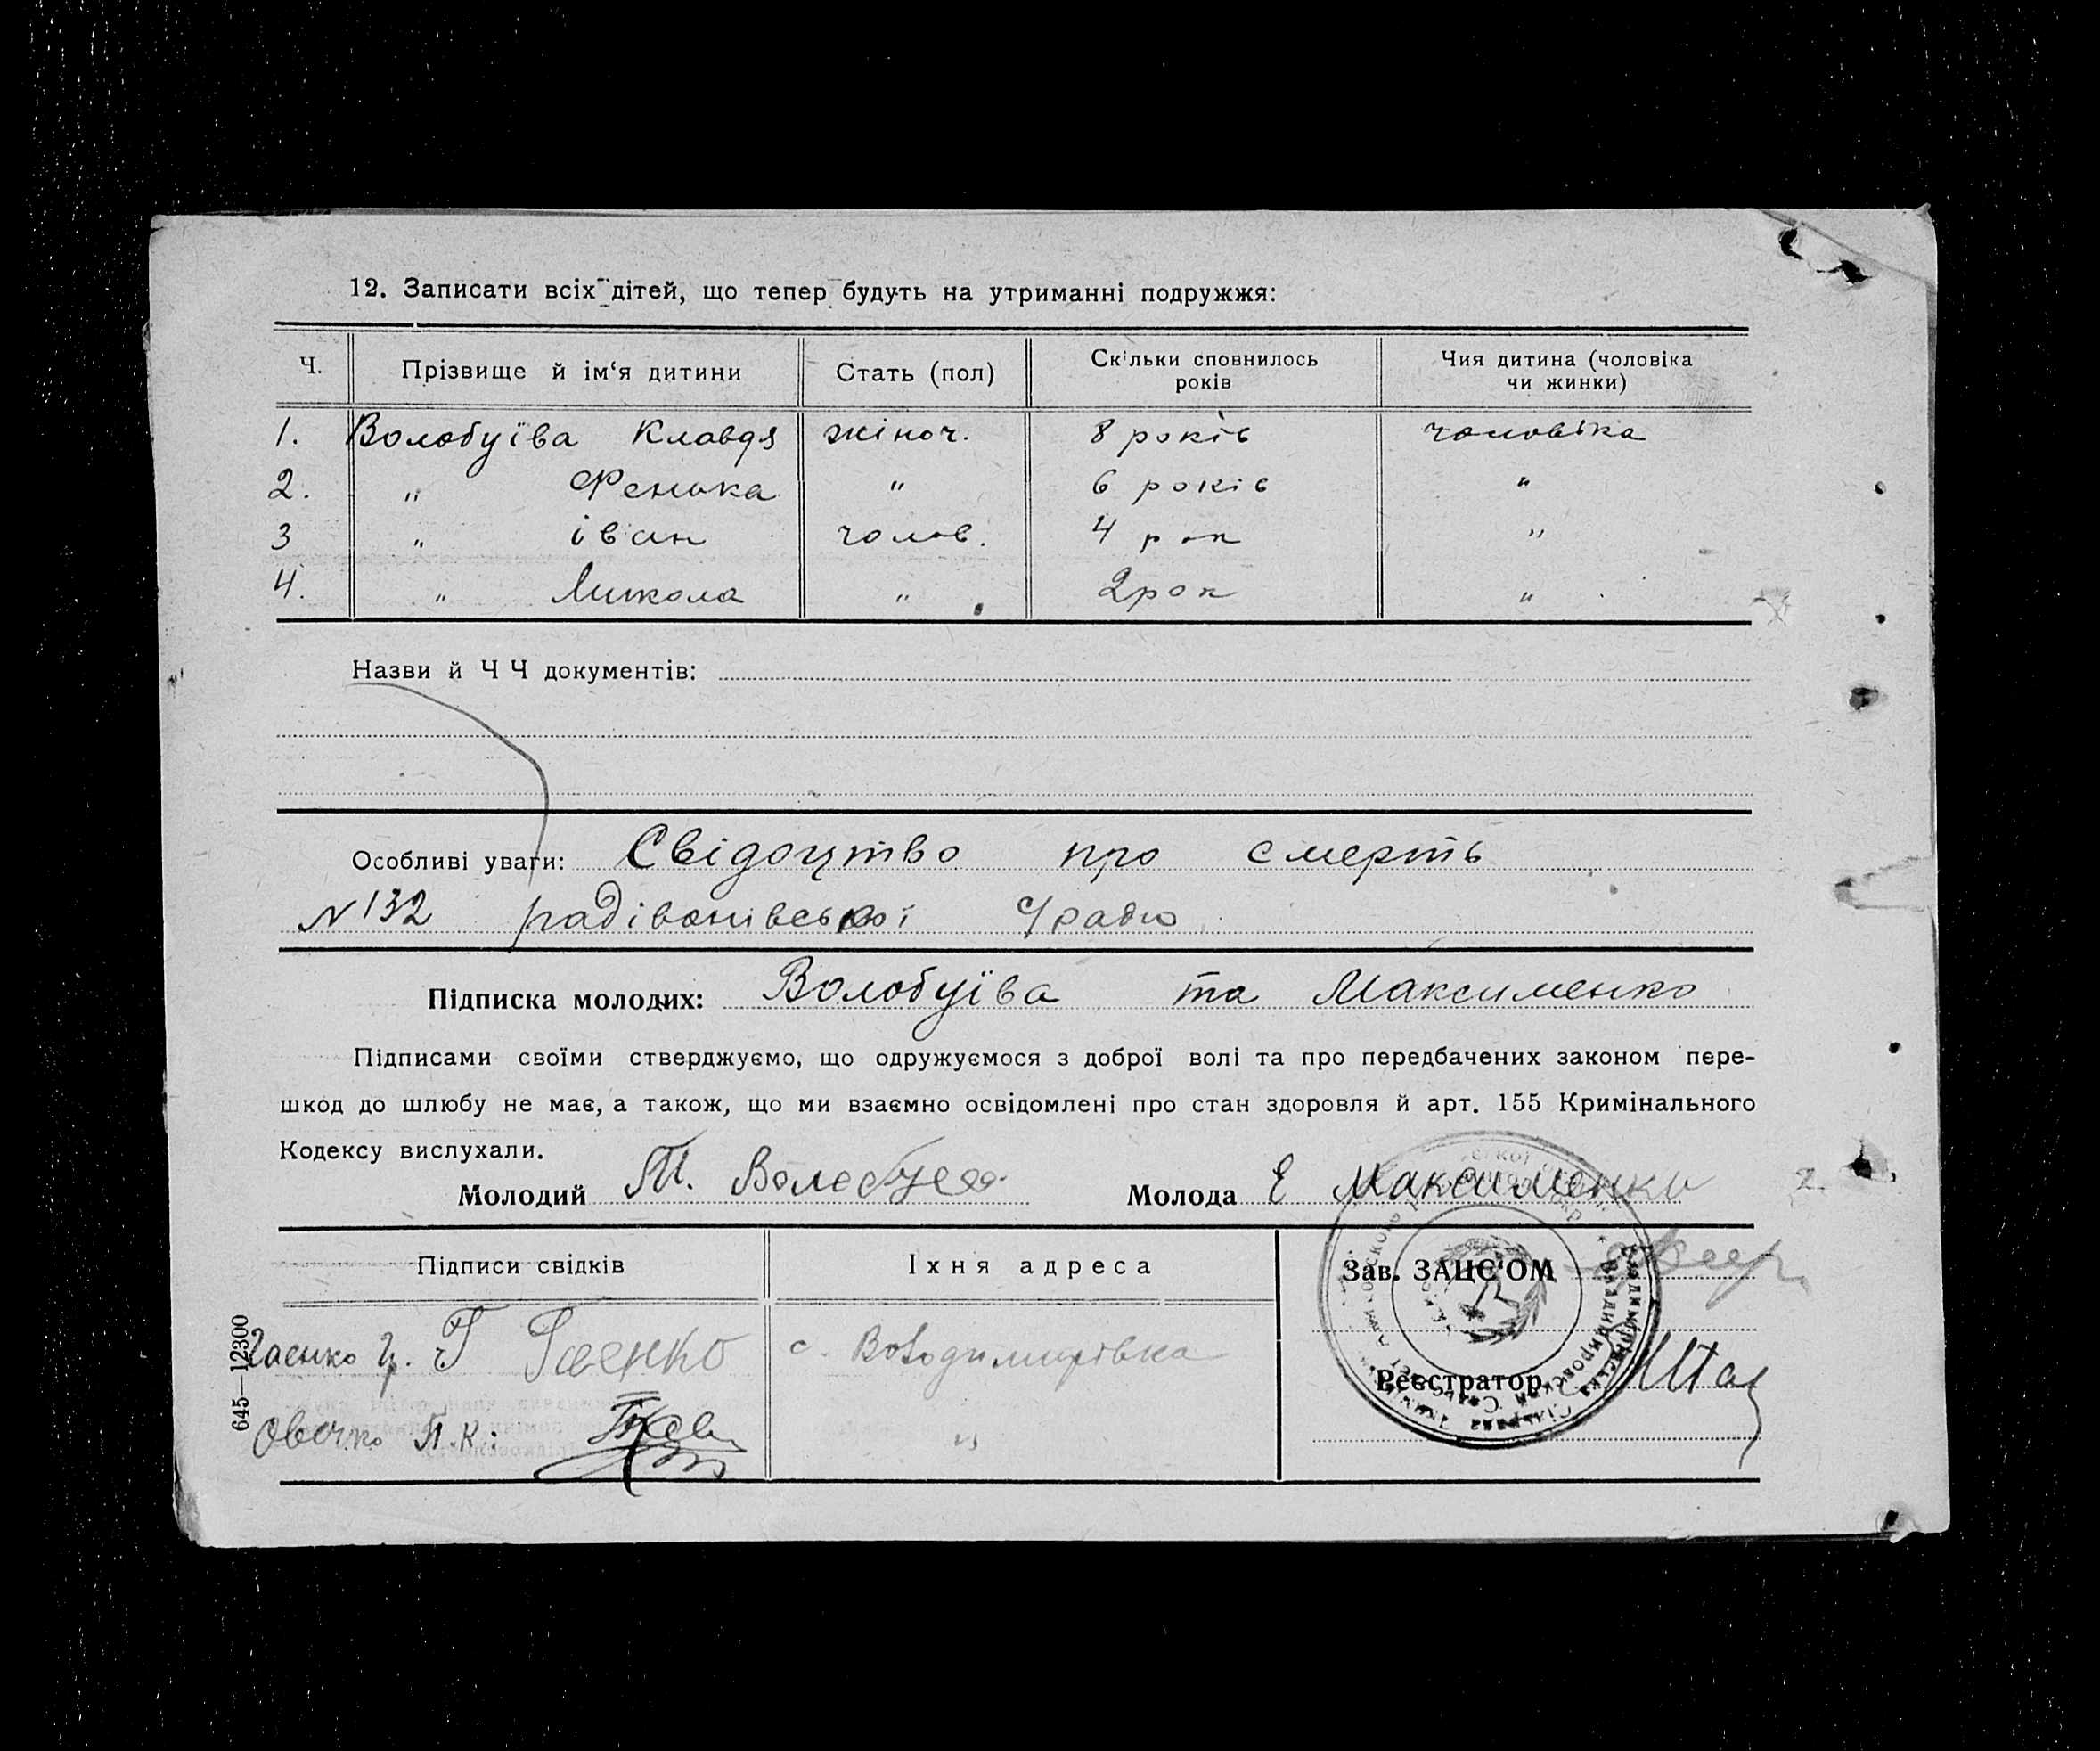 12. Записати всіх дітей, що тепер будуть на утриманні подружжя:
Ч. Прізвище й ім‘я дитини Стать (пол) Скільки сповнилось років Чия дитина (чоловіка чи жинки)
1. Волобуїва Клавдя жіноч. 8 років чоловіка
2. " Фенька " 6 років "
3 " іван чолов. 4 рок "
4. " Микола " 2 рок "
Назви й Ч Ч документів:
Особливі уваги: Свідоцтво про смерть
N 132 радівонівської
Підписка молодих: Волобуїва та Максименко
Підписами своїми стверджуємо, що одружуємося з доброї волі та про передбачених законом пере-
шкод до шлюбу не має, а також, що ми взаємно освідомлені про стан здоровля й арт. 155 Кримінального
Кодексу вислухали.
Молодий Волобуев Молода Е Максименко
Підписи свідків Їхня адреса Зав. ЗАЦС‘ОМ
Гаенко Г. Г Гаенко с. Володимирівка
Реєстратор
Овечко П. К. "
645—12300